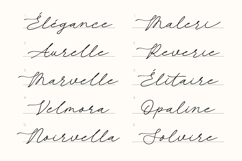 Élégance
Aurelle
Marvelle
Velmora
Noirvella
Maleri
Reverie
Élitaire
Opaline
Solvire